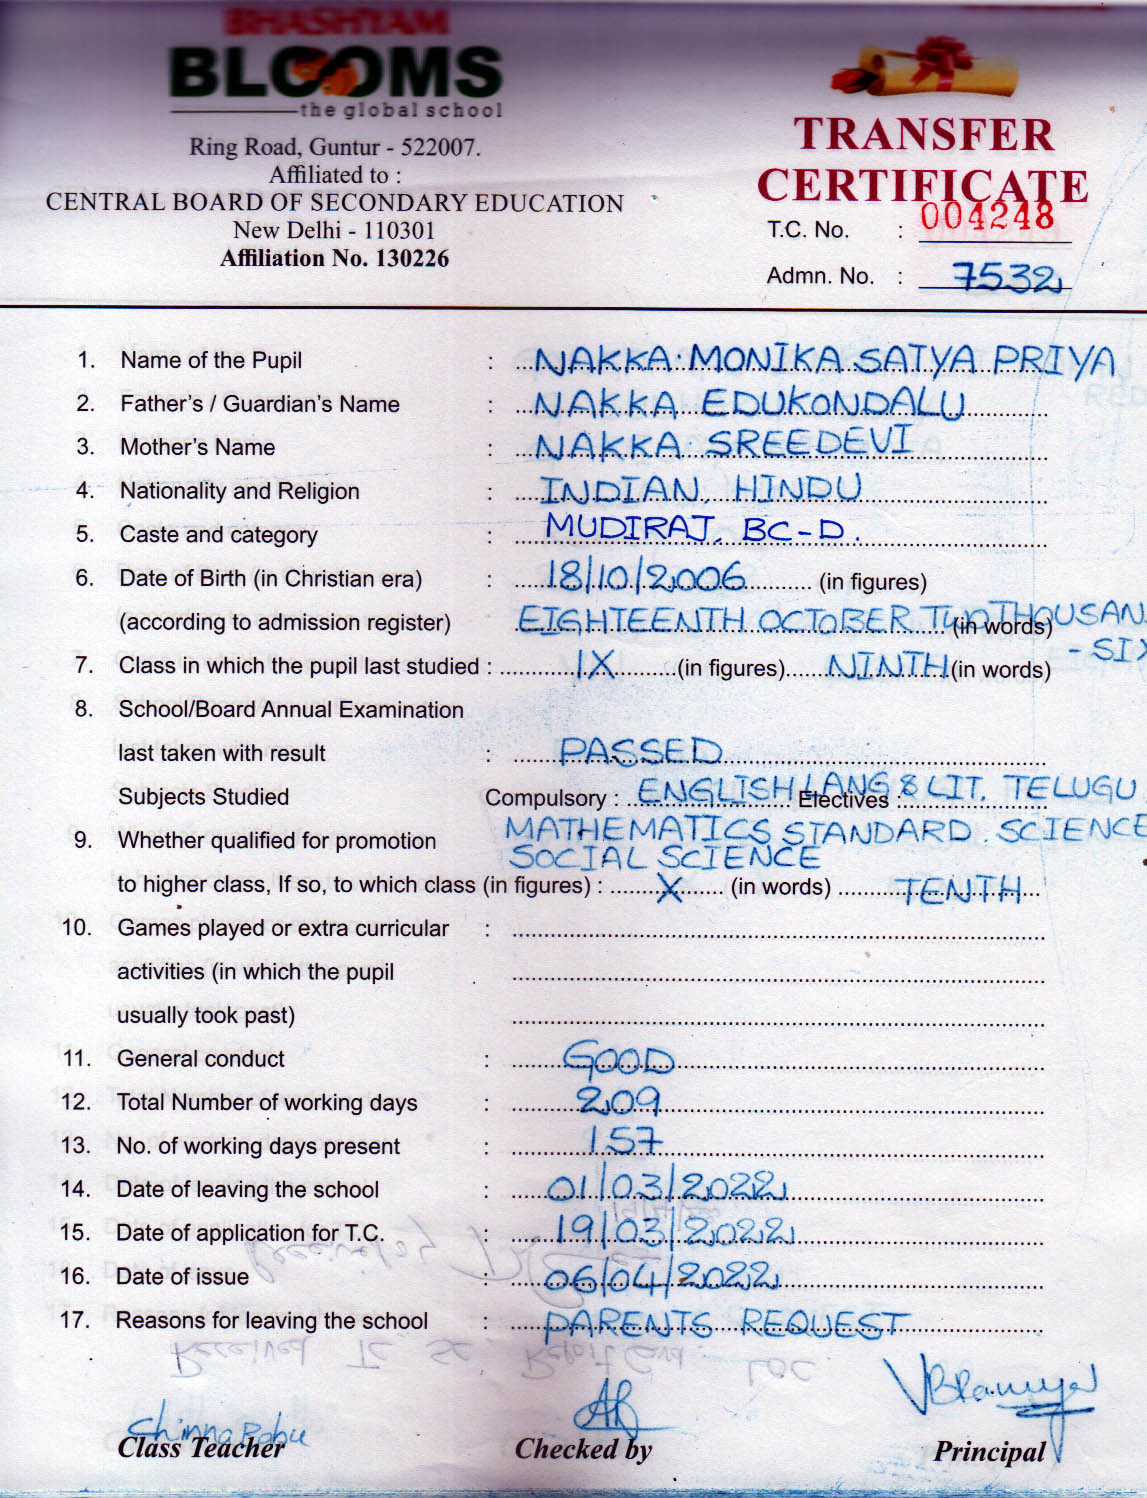 BHASHYAM
BLOOMS
the global school
Ring Road, Guntur - 522007.
Affiliated to :
CENTRAL BOARD OF SECONDARY EDUCATION
New Delhi - 110301
Affiliation No. 130226
TRANSFER
CERTIFICATE
T.C. No. : 004248
Admn. No. : 7532
1. Name of the Pupil : NAKKA. MONIKA SATYA PRIYA
2. Father's / Guardian's Name : NAKKA EDUKONDALU
3. Mother's Name : NAKKA SREEDEVI
4. Nationality and Religion : INDIAN, HINDU
5. Caste and category : MUDIRAJ, BC-D.
6. Date of Birth (in Christian era) : 18/10/2006 (in figures)
(according to admission register) EIGHTEENTH OCTOBER TWO THOUSAN (in words)
- SIX
7. Class in which the pupil last studied : IX (in figures) NINTH (in words)
8. School/Board Annual Examination
last taken with result : PASSED
Subjects Studied Compulsory : ENGLISH LANG & LIT, TELUGU Electives :
MATHEMATICS STANDARD, SCIENCE
9. Whether qualified for promotion SOCIAL SCIENCE
to higher class, If so, to which class (in figures) : X (in words) TENTH
10. Games played or extra curricular :
activities (in which the pupil
usually took past)
11. General conduct : GOOD
12. Total Number of working days : 209
13. No. of working days present : 157
14. Date of leaving the school : 01/03/2022
15. Date of application for T.C. : 19/03/2022
16. Date of issue : 06/04/2022
17. Reasons for leaving the school : PARENTS REQUEST
Received TC SC Report Card LOC
Chinna Babu
Class Teacher Checked by Principal